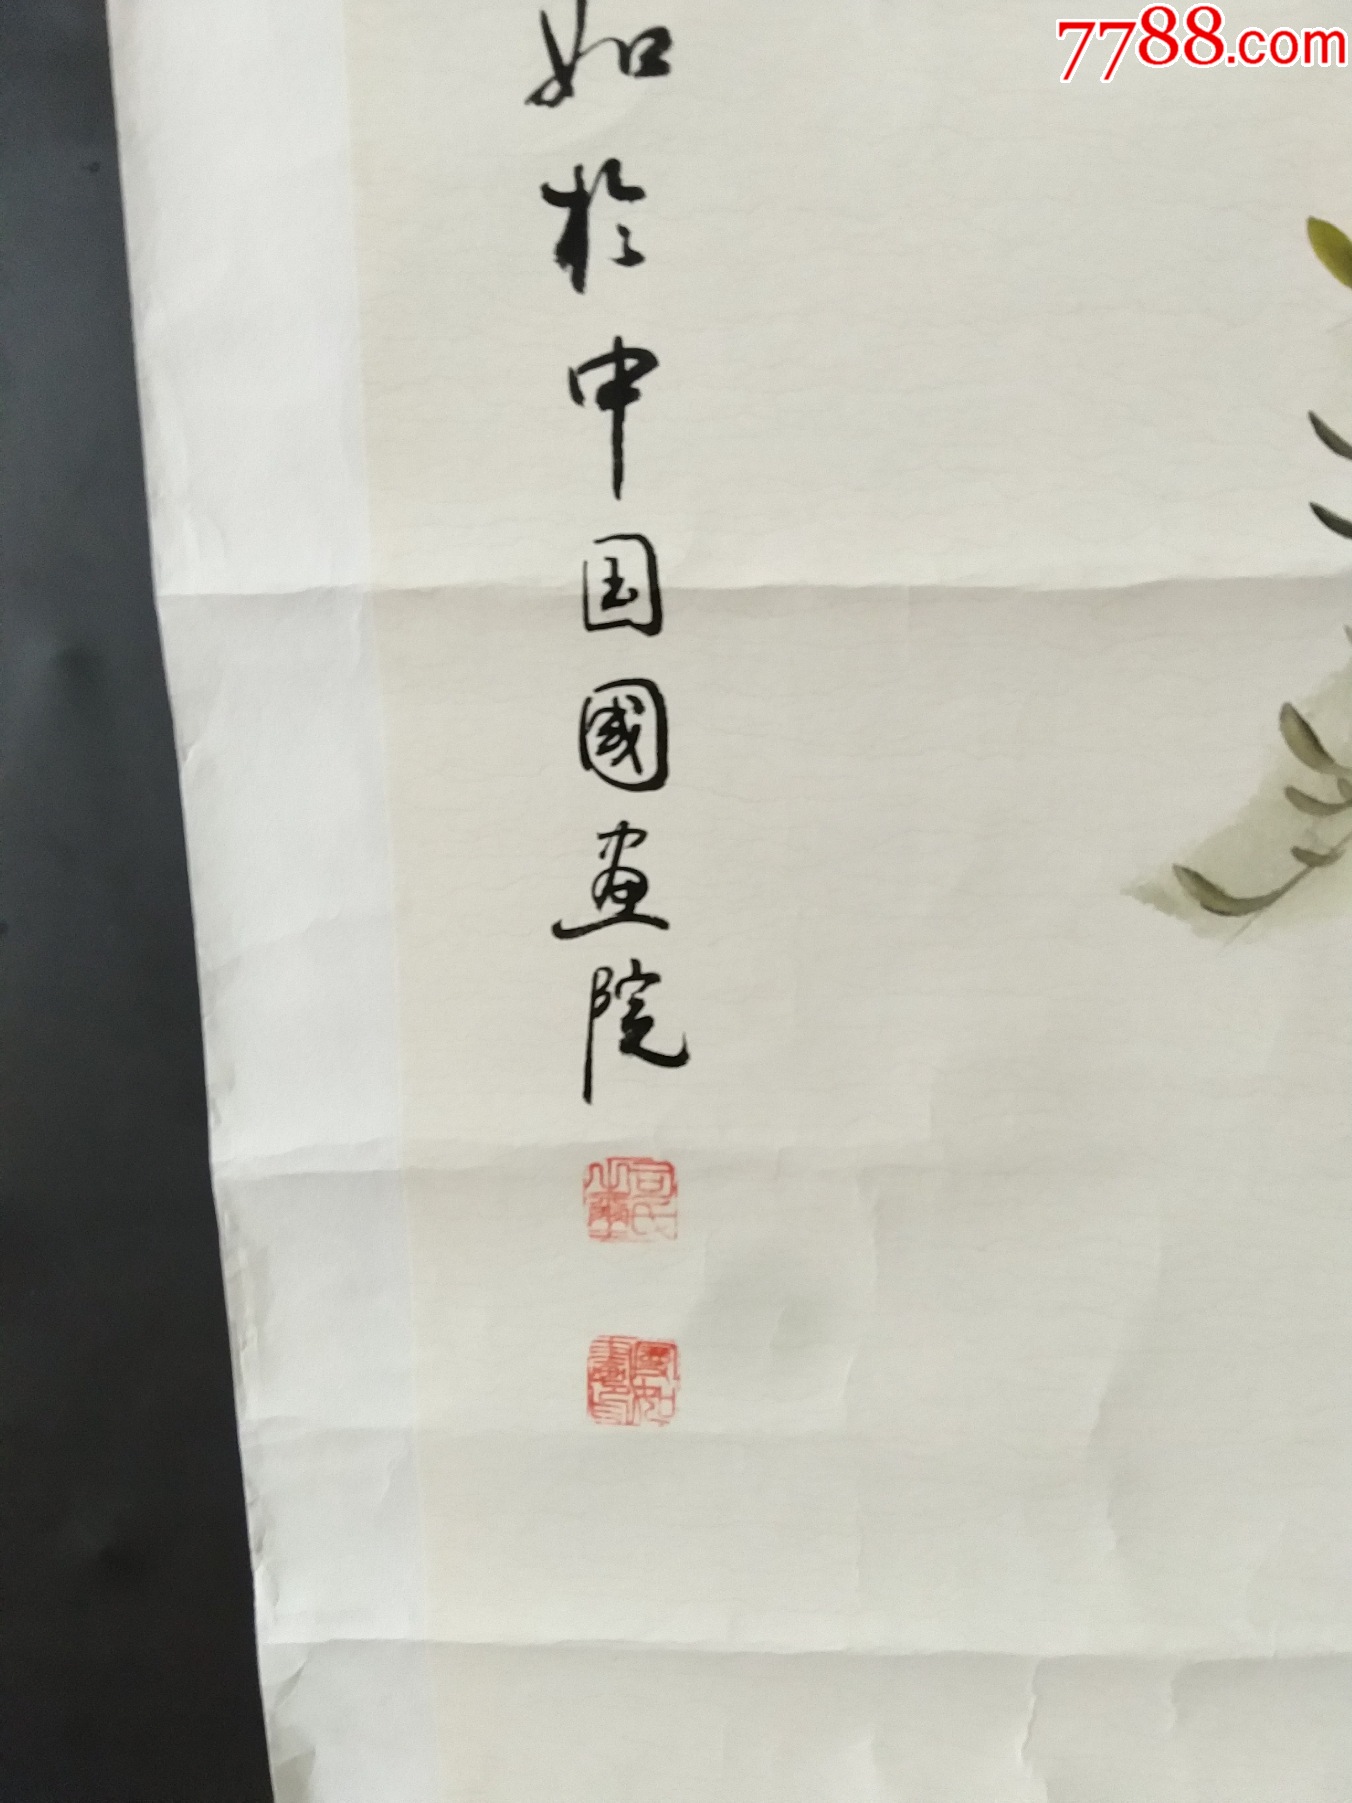 7788.com
如於中国國画院